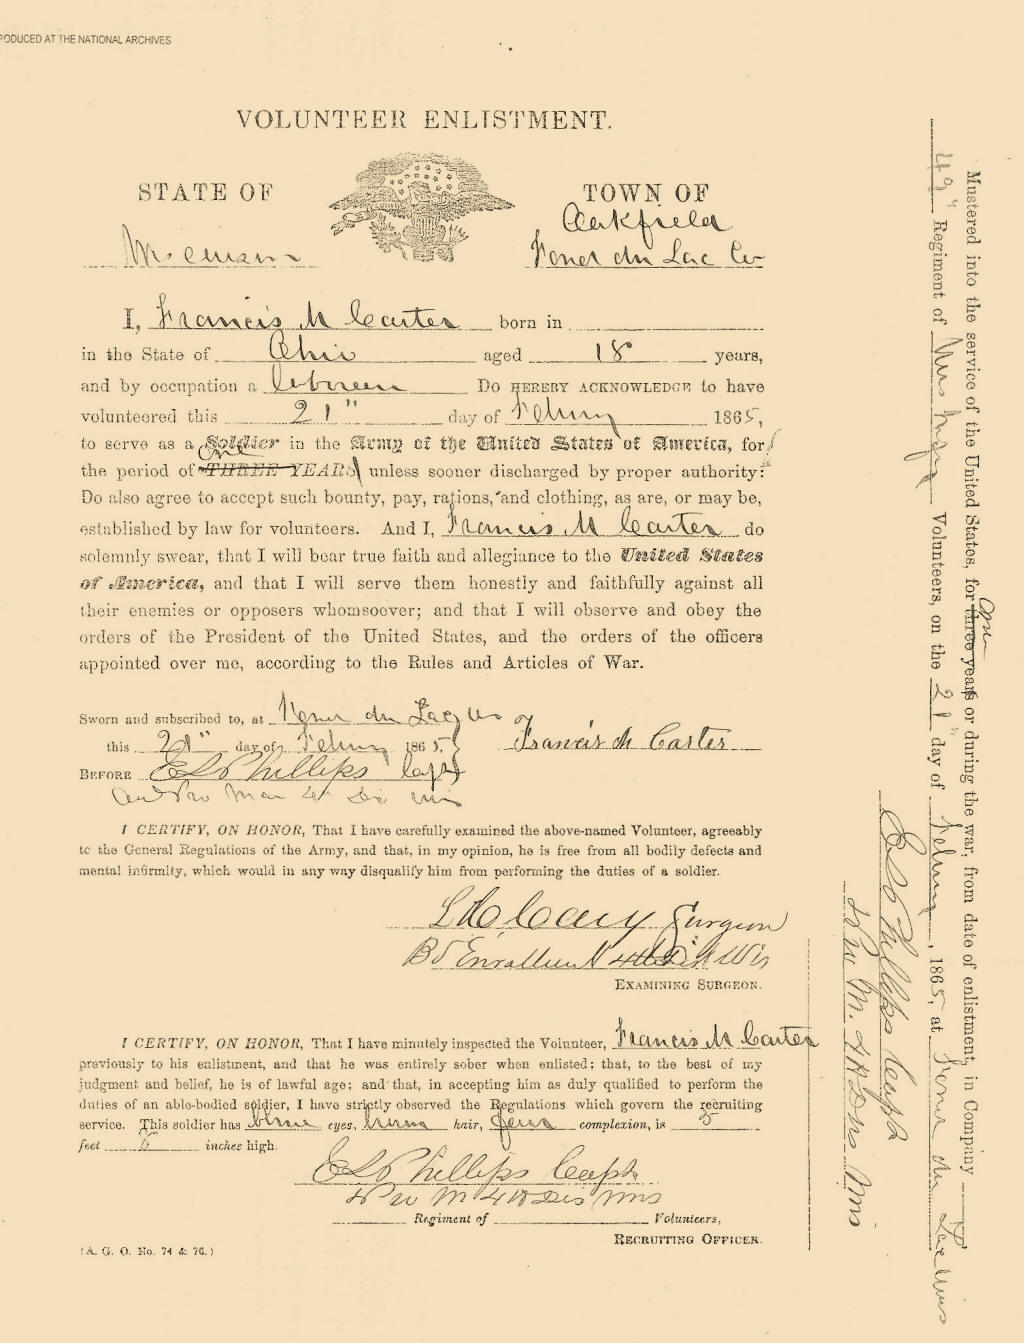 PRODUCED AT THE NATIONAL ARCHIVES
VOLUNTEER ENLISTMENT.
STATE OF
TOWN OF
Wisconsin
Oakfield
Fond du Lac Co
I, Francis M Carter born in
in the State of Ohio aged 18 years,
and by occupation a Do HEREBY ACKNOWLEDGE to have
volunteered this 21" day of Febury 1865,
to serve as a Soldier in the Army of the United States of America, for
One
the period of THREE YEARS unless sooner discharged by proper authority:
Do also agree to accept such bounty, pay, rations, and clothing, as are, or may be,
established by law for volunteers. And I, Francis M Carter do
solemnly swear, that I will bear true faith and allegiance to the United States
of America, and that I will serve them honestly and faithfully against all
their enemies or opposers whomsoever; and that I will observe and obey the
orders of the President of the United States, and the orders of the officers
appointed over me, according to the Rules and Articles of War.
Sworn and subscribed to, at Fond du Lac Wis
this 21" day of Febury 1865
Francis M Carter
BEFORE E L Phillips Capt
I CERTIFY, ON HONOR, That I have carefully examined the above-named Volunteer, agreeably
to the General Regulations of the Army, and that, in my opinion, he is free from all bodily defects and
mental infirmity, which would in any way disqualify him from performing the duties of a soldier.
Surgeon
4th Dist Wis
EXAMINING SURGEON.
I CERTIFY, ON HONOR, That I have minutely inspected the Volunteer, Francis M Carter
previously to his enlistment, and that he was entirely sober when enlisted; that, to the best of my
judgment and belief, he is of lawful age; and that, in accepting him as duly qualified to perform the
duties of an able-bodied soldier, I have strictly observed the Regulations which govern the recruiting
service. This soldier has blue eyes, hair, complexion, is 5
feet inches high.
E L Phillips Capt
Regiment of Volunteers,
RECRUITING OFFICER.
(A. G. O. No. 74 & 76.)
One
Mustered into the service of the United States, for three years or during the war, from date of enlistment, in Company
49" Regiment of Volunteers, on the 21" day of Febury, 1865, at Fond du Lac Wis
E L Phillips Capt